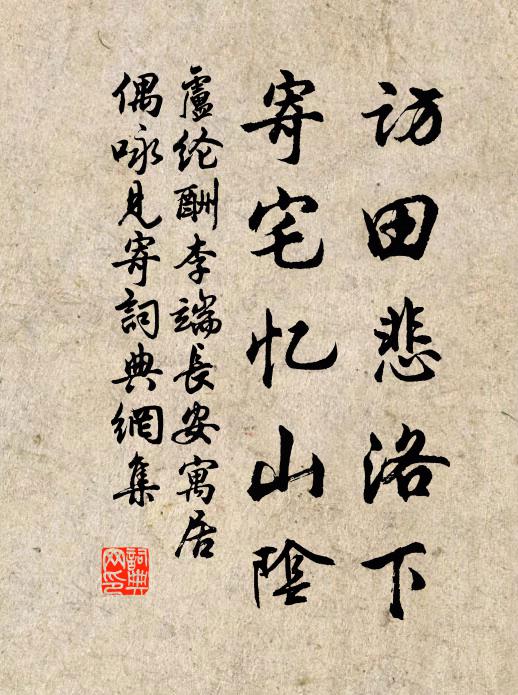 访田悲洛下
寄宅忆山陰
盧纶酬李端長安寓居
偶咏見寄詞典網集
詞典网印